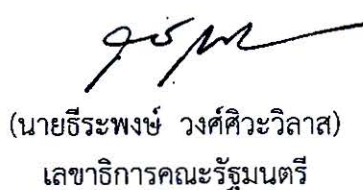 (นายธีระพงษ์ วงศ์ศิวะวิลาส)
เลขาธิการคณะรัฐมนตรี